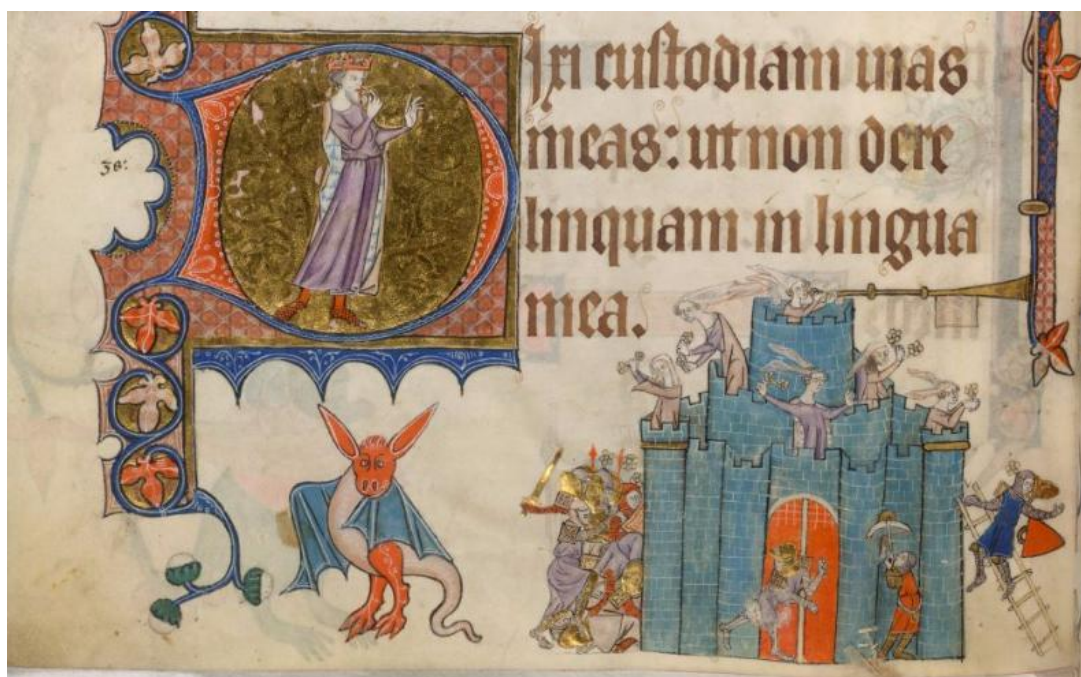 38:
DIxi custodiam uias
meas: ut non dere
linquam in lingua
mea.